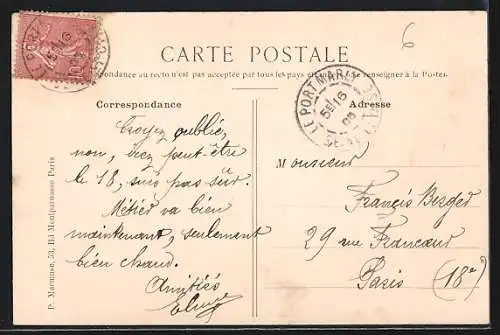 CARTE POSTALE
pondance au recto n'est pas acceptée par tous les pays étran
se renseigner à la Poste
Correspondance
Adresse
Croyez oublié,
non, irez peut-être
le 18, suis pas sûr.
Métier va bien
maintenant, seulement
bien chaud.
Amitiés
Monsieur
François Berger
29 rue Francœur
Paris (18e)
P. Marmuse, 53, Bd Montparnasse Paris
LE PORT MARLY
5E 16
6